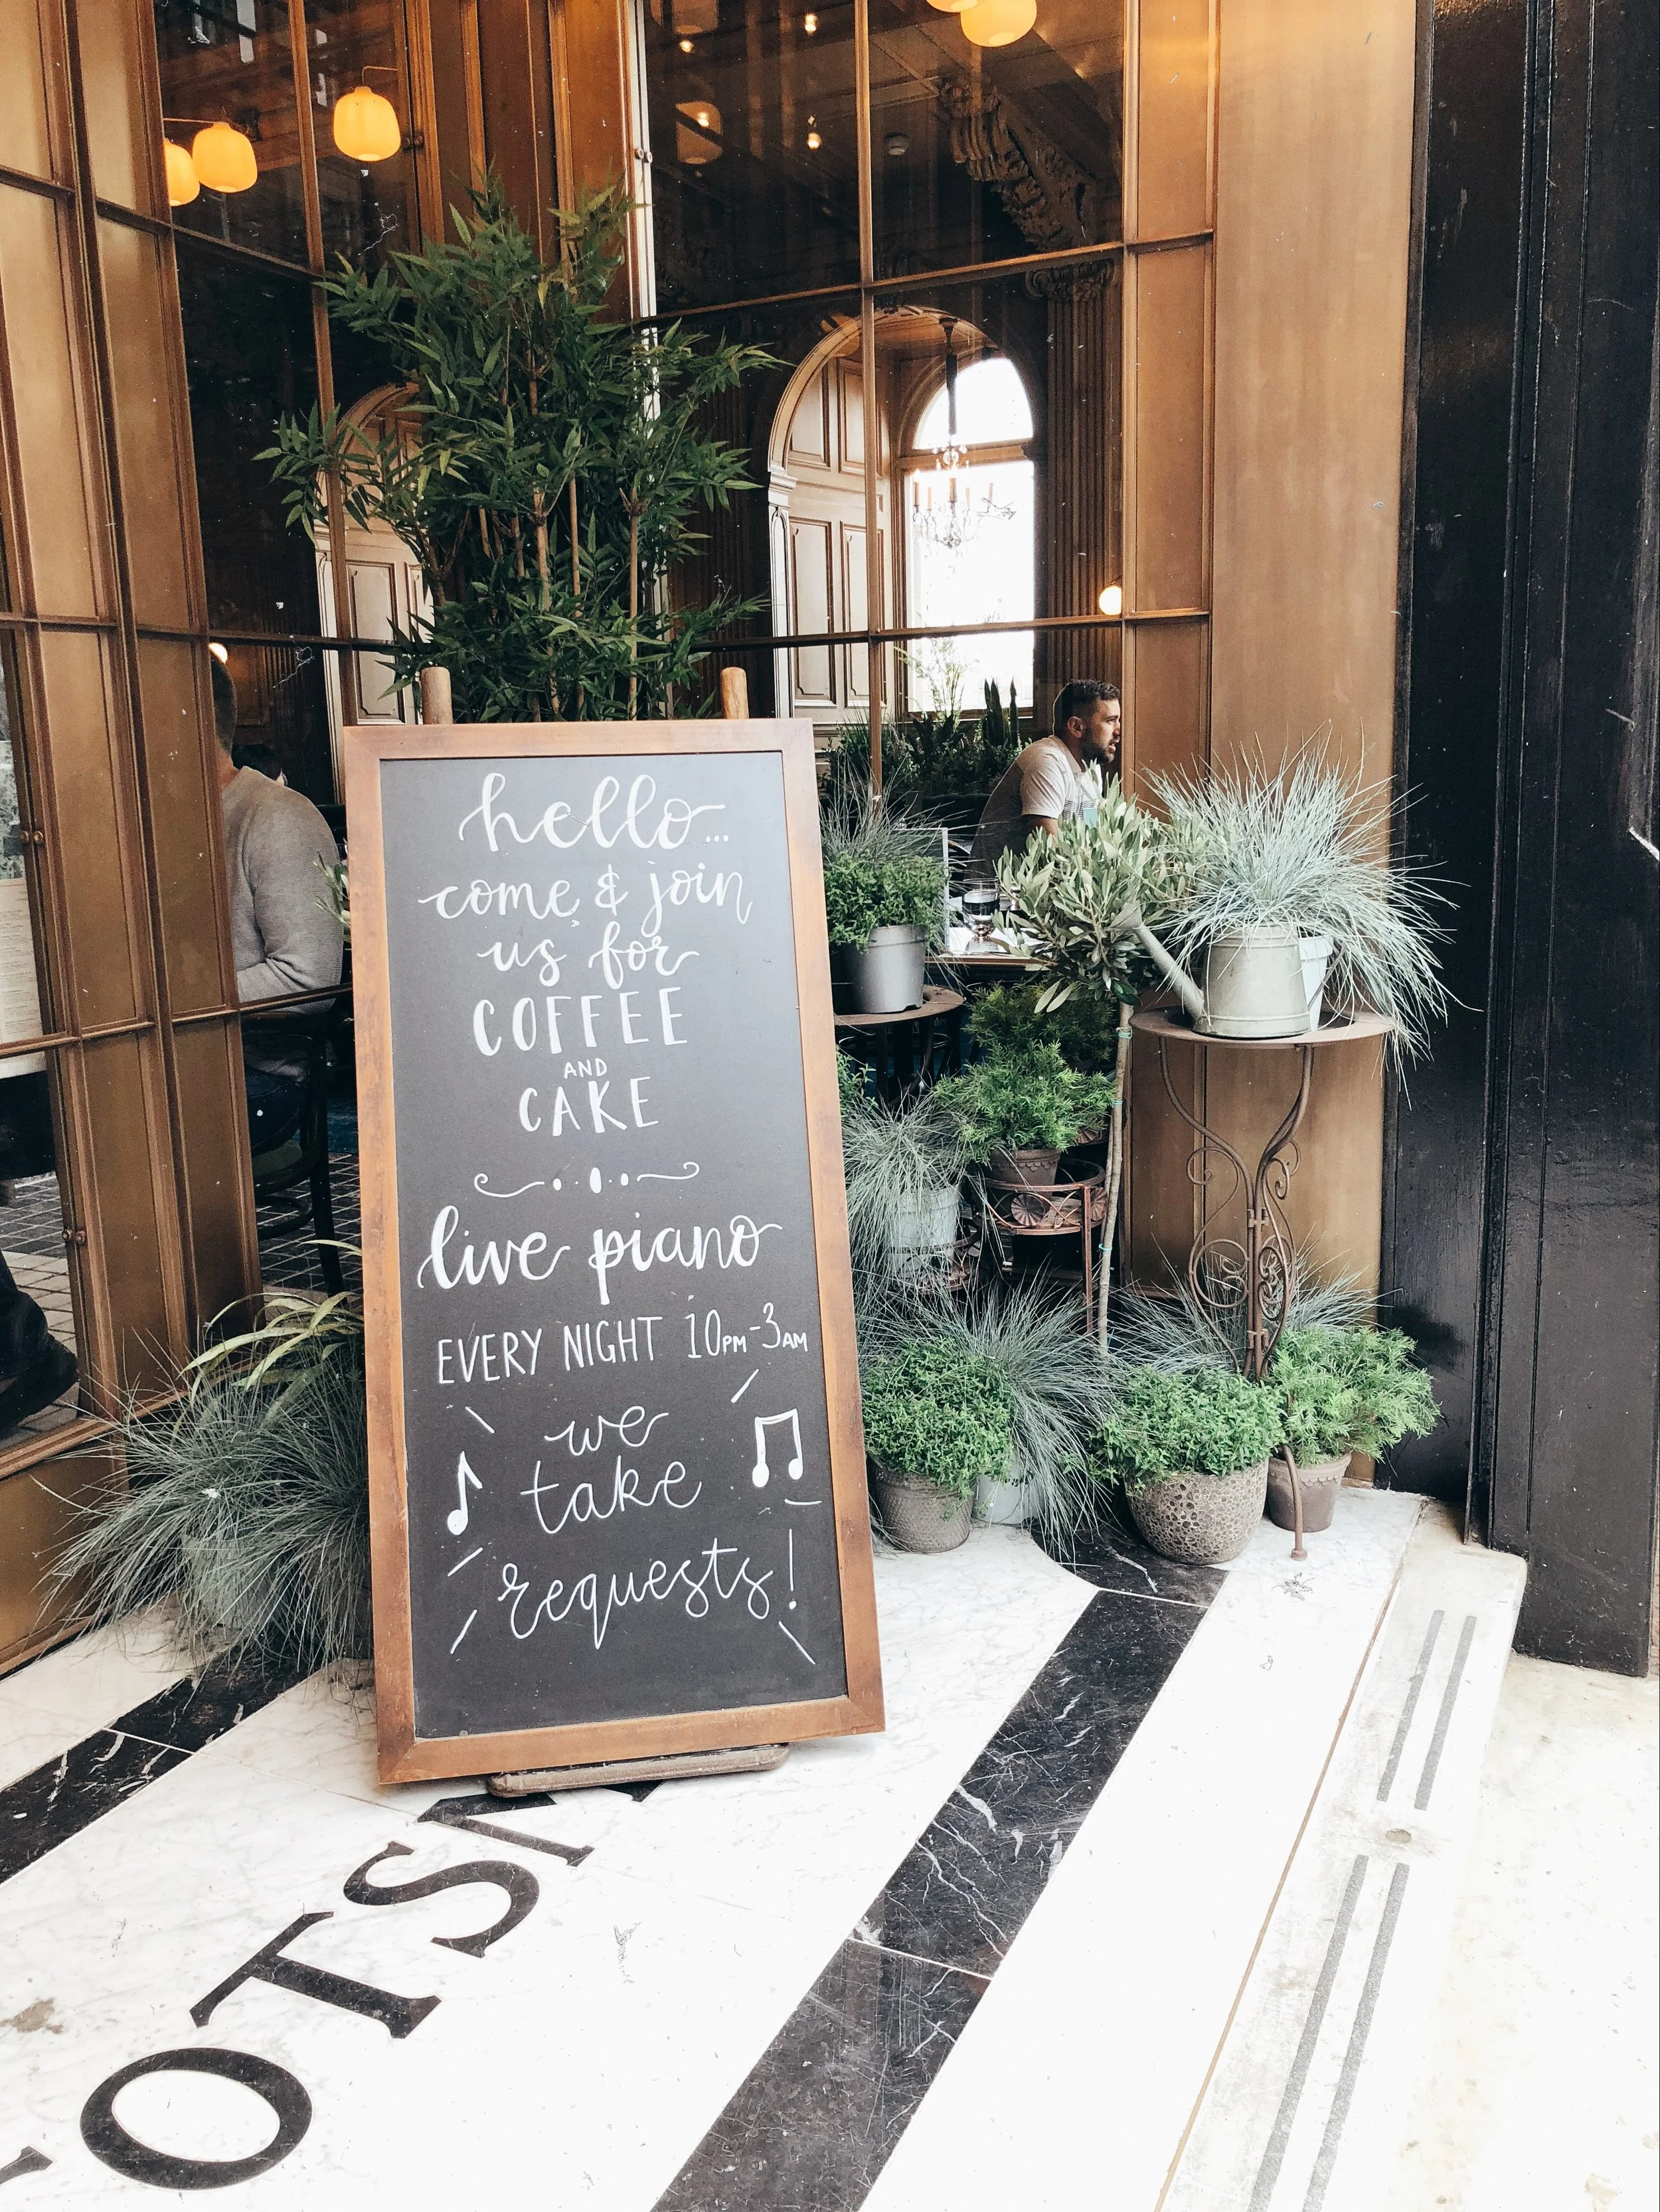 hello...
come & join
us for
COFFEE
AND
CAKE
live piano
EVERY NIGHT 10PM-3AM
we
take
requests!
OTSM